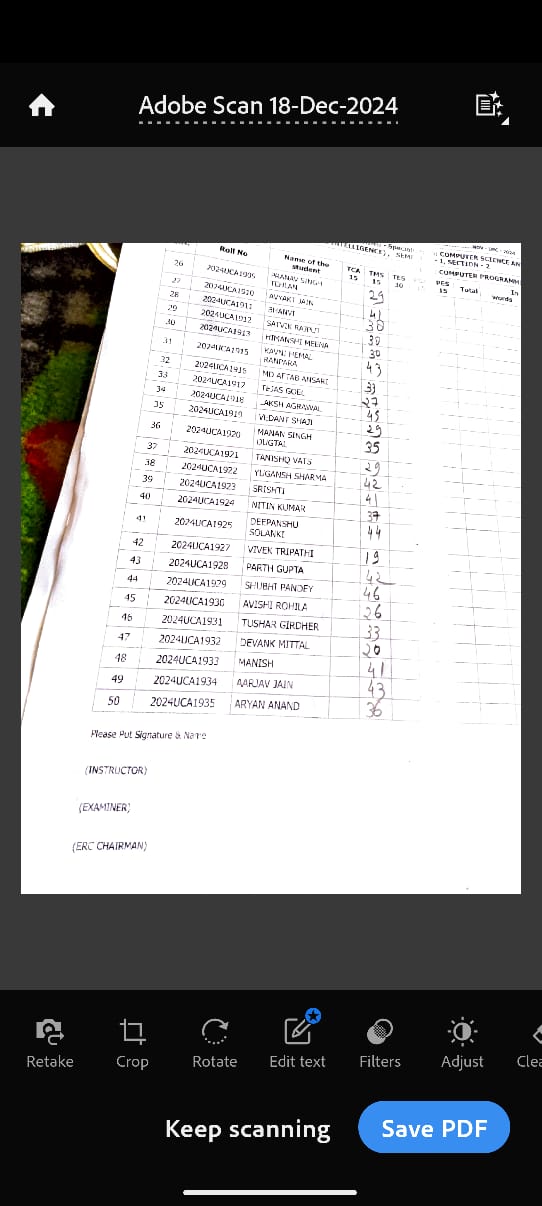 Adobe Scan 18-Dec-2024
NOV - DEC - 2024
INTELLIGENCE), SEM
COMPUTER SCIENCE AN
- 1, SECTION - 2
COMPUTER PROGRAMM
Roll No Name of the student TCA 15 TMS 15 TES PES 15 Total In words
26 2024UCA1909 PRANAV SINGH TEHLAN 29
27 2024UCA1910 AVYAKT JAIN 41
28 2024UCA1911 BHANVI 38
29 2024UCA1912 SATVIK RAJPUT 30
30 2024UCA1913 HIMANSHI MEENA 30
31 2024UCA1915 KAVNI HEMAL RANPARA 43
32 2024UCA1916 MD AFTAB ANSARI 33
33 2024UCA1917 TEJAS GOEL 27
34 2024UCA1918 LAKSH AGRAWAL 45
35 2024UCA1919 VEDANT SHAJI 29
36 2024UCA1920 MANAN SINGH DUGTAL 35
37 2024UCA1921 TANISHQ VATS 29
38 2024UCA1922 YUGANSH SHARMA 42
39 2024UCA1923 SRISHTI 41
40 2024UCA1924 NITIN KUMAR 37
41 2024UCA1925 DEEPANSHU SOLANKI 44
42 2024UCA1927 VIVEK TRIPATHI 19
43 2024UCA1928 PARTH GUPTA 42
44 2024UCA1929 SHUBHI PANDEY 46
45 2024UCA1930 AVISHI ROHILA 26
46 2024UCA1931 TUSHAR GIRDHER 33
47 2024UCA1932 DEVANK MITTAL 20
48 2024UCA1933 MANISH 41
49 2024UCA1934 AARJAV JAIN 43
50 2024UCA1935 ARYAN ANAND 36
Please Put Signature & Name
(INSTRUCTOR)
(EXAMINER)
(ERC CHAIRMAN)
Retake Crop Rotate Edit text Filters Adjust Clea
Keep scanning Save PDF